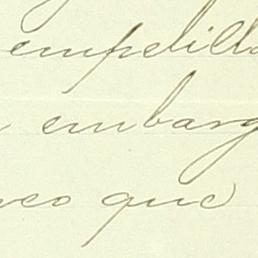 empelill
embarg
eo que